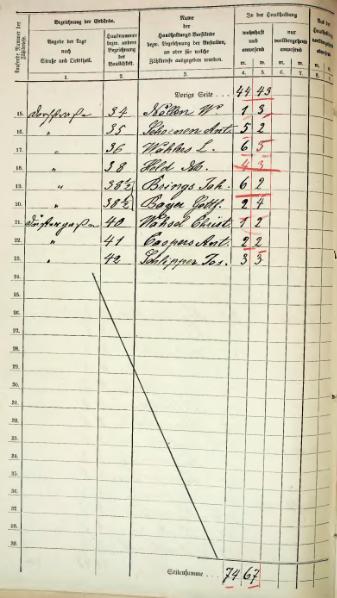 Laufende Nummer der Zählliste.
Bezeichnung der Gebäude.
Angabe der Lage
nach
Straße und Ortsteil.
Hausnummer
bezw. andere
Bezeichnung
der
Baulichkeit.
Name
der
Haushaltungs-Vorstände
bezw. Bezeichnung der Anstalten,
an oder für welche
Zählbriefe ausgegeben wurden.
In der Haushaltung
wohnhaft
und
anwesend
nur
vorübergehend
anwesend
m. w. m. w.
1. 2. 3. 4. 5. 6. 7.
Vorige Seite . . . 44 43
15. Dorfstraße 34 Nollen W. 1 3
16. " 35 Schoenen Ant. 5 2
17. " 36 Wahlers L. 6 5
18. " 38 Held 4 3
19. " 38½ Brings Joh. 6 2
20. " 38½ Bayer Gottf. 2 4
21. 40 Christ. 1 2
22. " 41 Caspers Ant. 2 2
23. " 42 Schlipper Jos. 3 3
24.
25.
26.
27.
28.
29.
30.
31.
32.
33.
34.
35.
36.
37.
38.
Seitensumme . . . 74 67